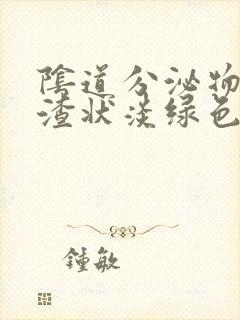 陰道分泌物
渣状淡绿色
鍾敏